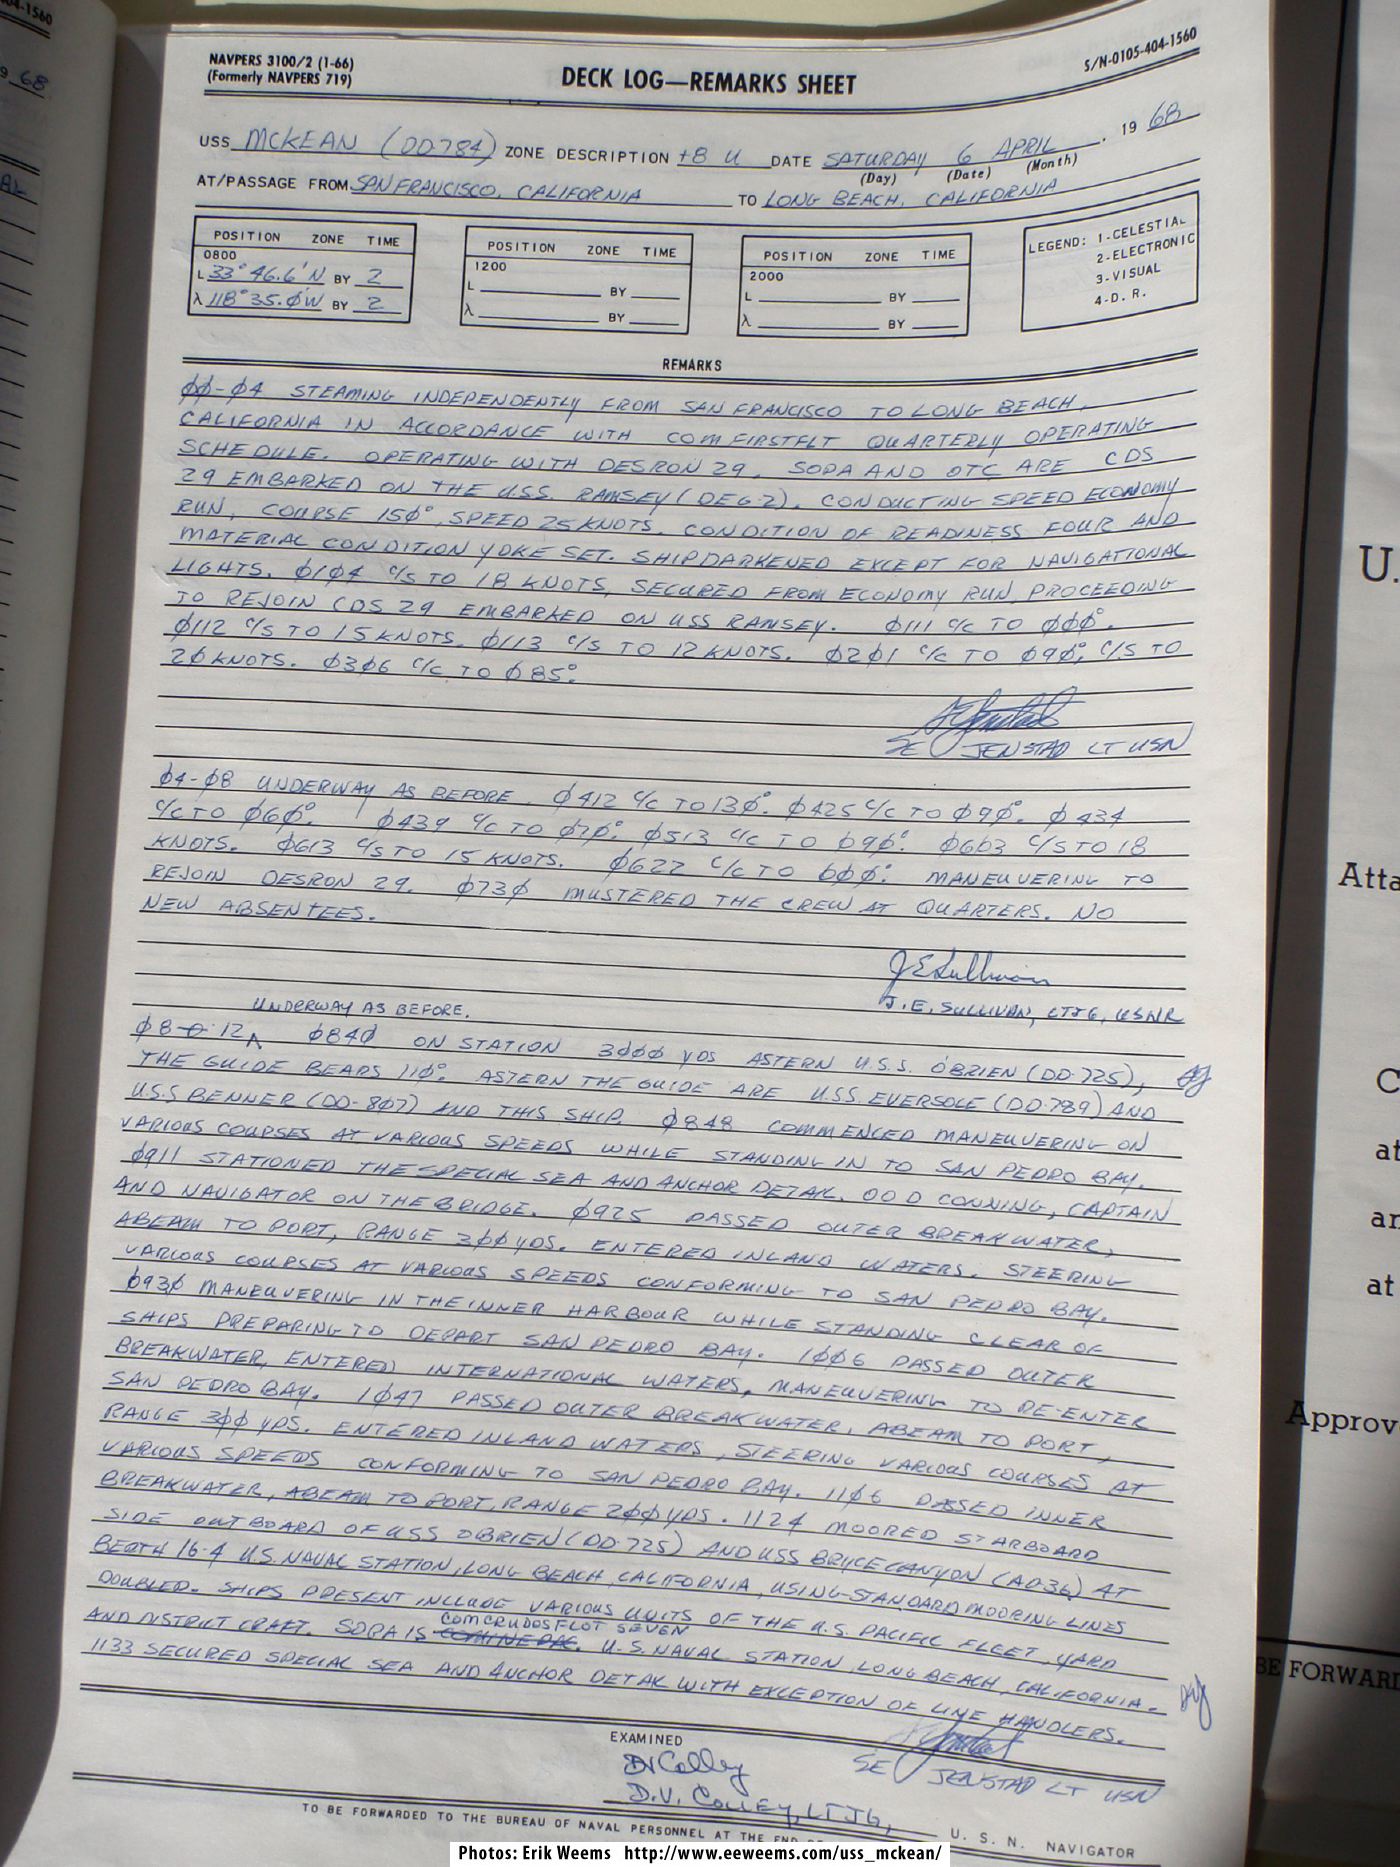 04-1560
9 68
AL
NAVPERS 3100/2 (1-66)
(Formerly NAVPERS 719)
DECK LOG—REMARKS SHEET
S/N-0105-404-1560
USS MCKEAN (DD784) ZONE DESCRIPTION +8 U DATE SATURDAY 6 APRIL . 19 68
(Day) (Date) (Month)
AT/PASSAGE FROM SAN FRANCISCO, CALIFORNIA TO LONG BEACH, CALIFORNIA
POSITION ZONE TIME
0800
L 33° 46.6'N BY 2
λ 118° 35.0'W BY 2
POSITION ZONE TIME
1200
L BY
λ BY
POSITION ZONE TIME
2000
L BY
λ BY
LEGEND: 1-CELESTIAL
2-ELECTRONIC
3-VISUAL
4-D. R.
REMARKS
00-04 STEAMING INDEPENDENTLY FROM SAN FRANCISCO TO LONG BEACH,
CALIFORNIA IN ACCORDANCE WITH COMFIRSTFLT QUARTERLY OPERATING
SCHEDULE. OPERATING WITH DESRON 29. SOPA AND OTC ARE CDS
29 EMBARKED ON THE U.S.S. RAMSEY (DEG-2). CONDUCTING SPEED ECONOMY
RUN, COURSE 150°, SPEED 25 KNOTS. CONDITION OF READINESS FOUR AND
MATERIAL CONDITION YOKE SET. SHIP DARKENED EXCEPT FOR NAVIGATIONAL
LIGHTS. 0104 C/S TO 18 KNOTS, SECURED FROM ECONOMY RUN, PROCEEDING
TO REJOIN CDS 29 EMBARKED ON USS RAMSEY. 0111 C/C TO 000°.
0112 C/S TO 15 KNOTS. 0113 C/S TO 12 KNOTS. 0201 C/C TO 090°, C/S TO
20 KNOTS. 0306 C/C TO 085°.
SE JENSTAD LT USN
04-08 UNDERWAY AS BEFORE. 0412 C/C TO 130°. 0425 C/C TO 090°. 0434
C/C TO 060°. 0439 C/C TO 070°. 0513 C/C TO 090°. 0603 C/S TO 18
KNOTS. 0613 C/S TO 15 KNOTS. 0622 C/C TO 000°. MANEUVERING TO
REJOIN DESRON 29. 0730 MUSTERED THE CREW AT QUARTERS. NO
NEW ABSENTEES.
J E Sullivan
J. E. SULLIVAN, LTJG, USNR
UNDERWAY AS BEFORE.
08-12 0840 ON STATION 3000 YDS ASTERN U.S.S. O'BRIEN (DD-725),
THE GUIDE BEARS 110°. ASTERN THE GUIDE ARE U.S.S. EVERSOLE (DD-789) AND
U.S.S BENNER (DD-807) AND THIS SHIP. 0848 COMMENCED MANEUVERING ON
VARIOUS COURSES AT VARIOUS SPEEDS WHILE STANDING IN TO SAN PEDRO BAY.
0911 STATIONED THE SPECIAL SEA AND ANCHOR DETAIL. OOD CONNING, CAPTAIN
AND NAVIGATOR ON THE BRIDGE. 0925 PASSED OUTER BREAKWATER,
ABEAM TO PORT, RANGE 300 YDS. ENTERED INLAND WATERS. STEERING
VARIOUS COURSES AT VARIOUS SPEEDS CONFORMING TO SAN PEDRO BAY.
0930 MANEUVERING IN THE INNER HARBOUR WHILE STANDING CLEAR OF
SHIPS PREPARING TO DEPART SAN PEDRO BAY. 1006 PASSED OUTER
BREAKWATER, ENTERED INTERNATIONAL WATERS, MANEUVERING TO RE-ENTER
SAN PEDRO BAY. 1047 PASSED OUTER BREAKWATER, ABEAM TO PORT,
RANGE 300 YDS. ENTERED INLAND WATERS, STEERING VARIOUS COURSES AT
VARIOUS SPEEDS CONFORMING TO SAN PEDRO BAY. 1106 PASSED INNER
BREAKWATER, ABEAM TO PORT, RANGE 200 YDS. 1124 MOORED STARBOARD
SIDE OUTBOARD OF USS O'BRIEN (DD-725) AND USS BRYCE CANYON (AD36) AT
BERTH 16-4 U.S. NAVAL STATION, LONG BEACH, CALIFORNIA, USING STANDARD MOORING LINES
DOUBLED. SHIPS PRESENT INCLUDE VARIOUS UNITS OF THE U.S. PACIFIC FLEET, YARD
COMCRUDESFLOT SEVEN
AND DISTRICT CRAFT. SOPA IS U.S. NAVAL STATION, LONG BEACH, CALIFORNIA.
1133 SECURED SPECIAL SEA AND ANCHOR DETAIL WITH EXCEPTION OF LINE HANDLERS.
SE JENSTAD LT USN
EXAMINED
DV Colley
D.V. COLLEY, LTJG, U. S. N. NAVIGATOR
TO BE FORWARDED TO THE BUREAU OF NAVAL PERSONNEL AT THE END
U.
Atta
C
at
an
at
Approv
BE FORWARD
Photos: Erik Weems http://www.eeweems.com/uss_mckean/